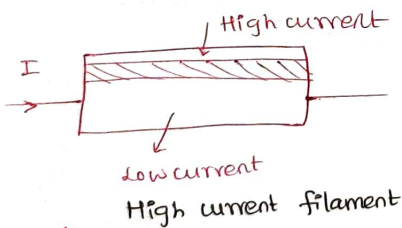 High current
I
Low current
High current filament